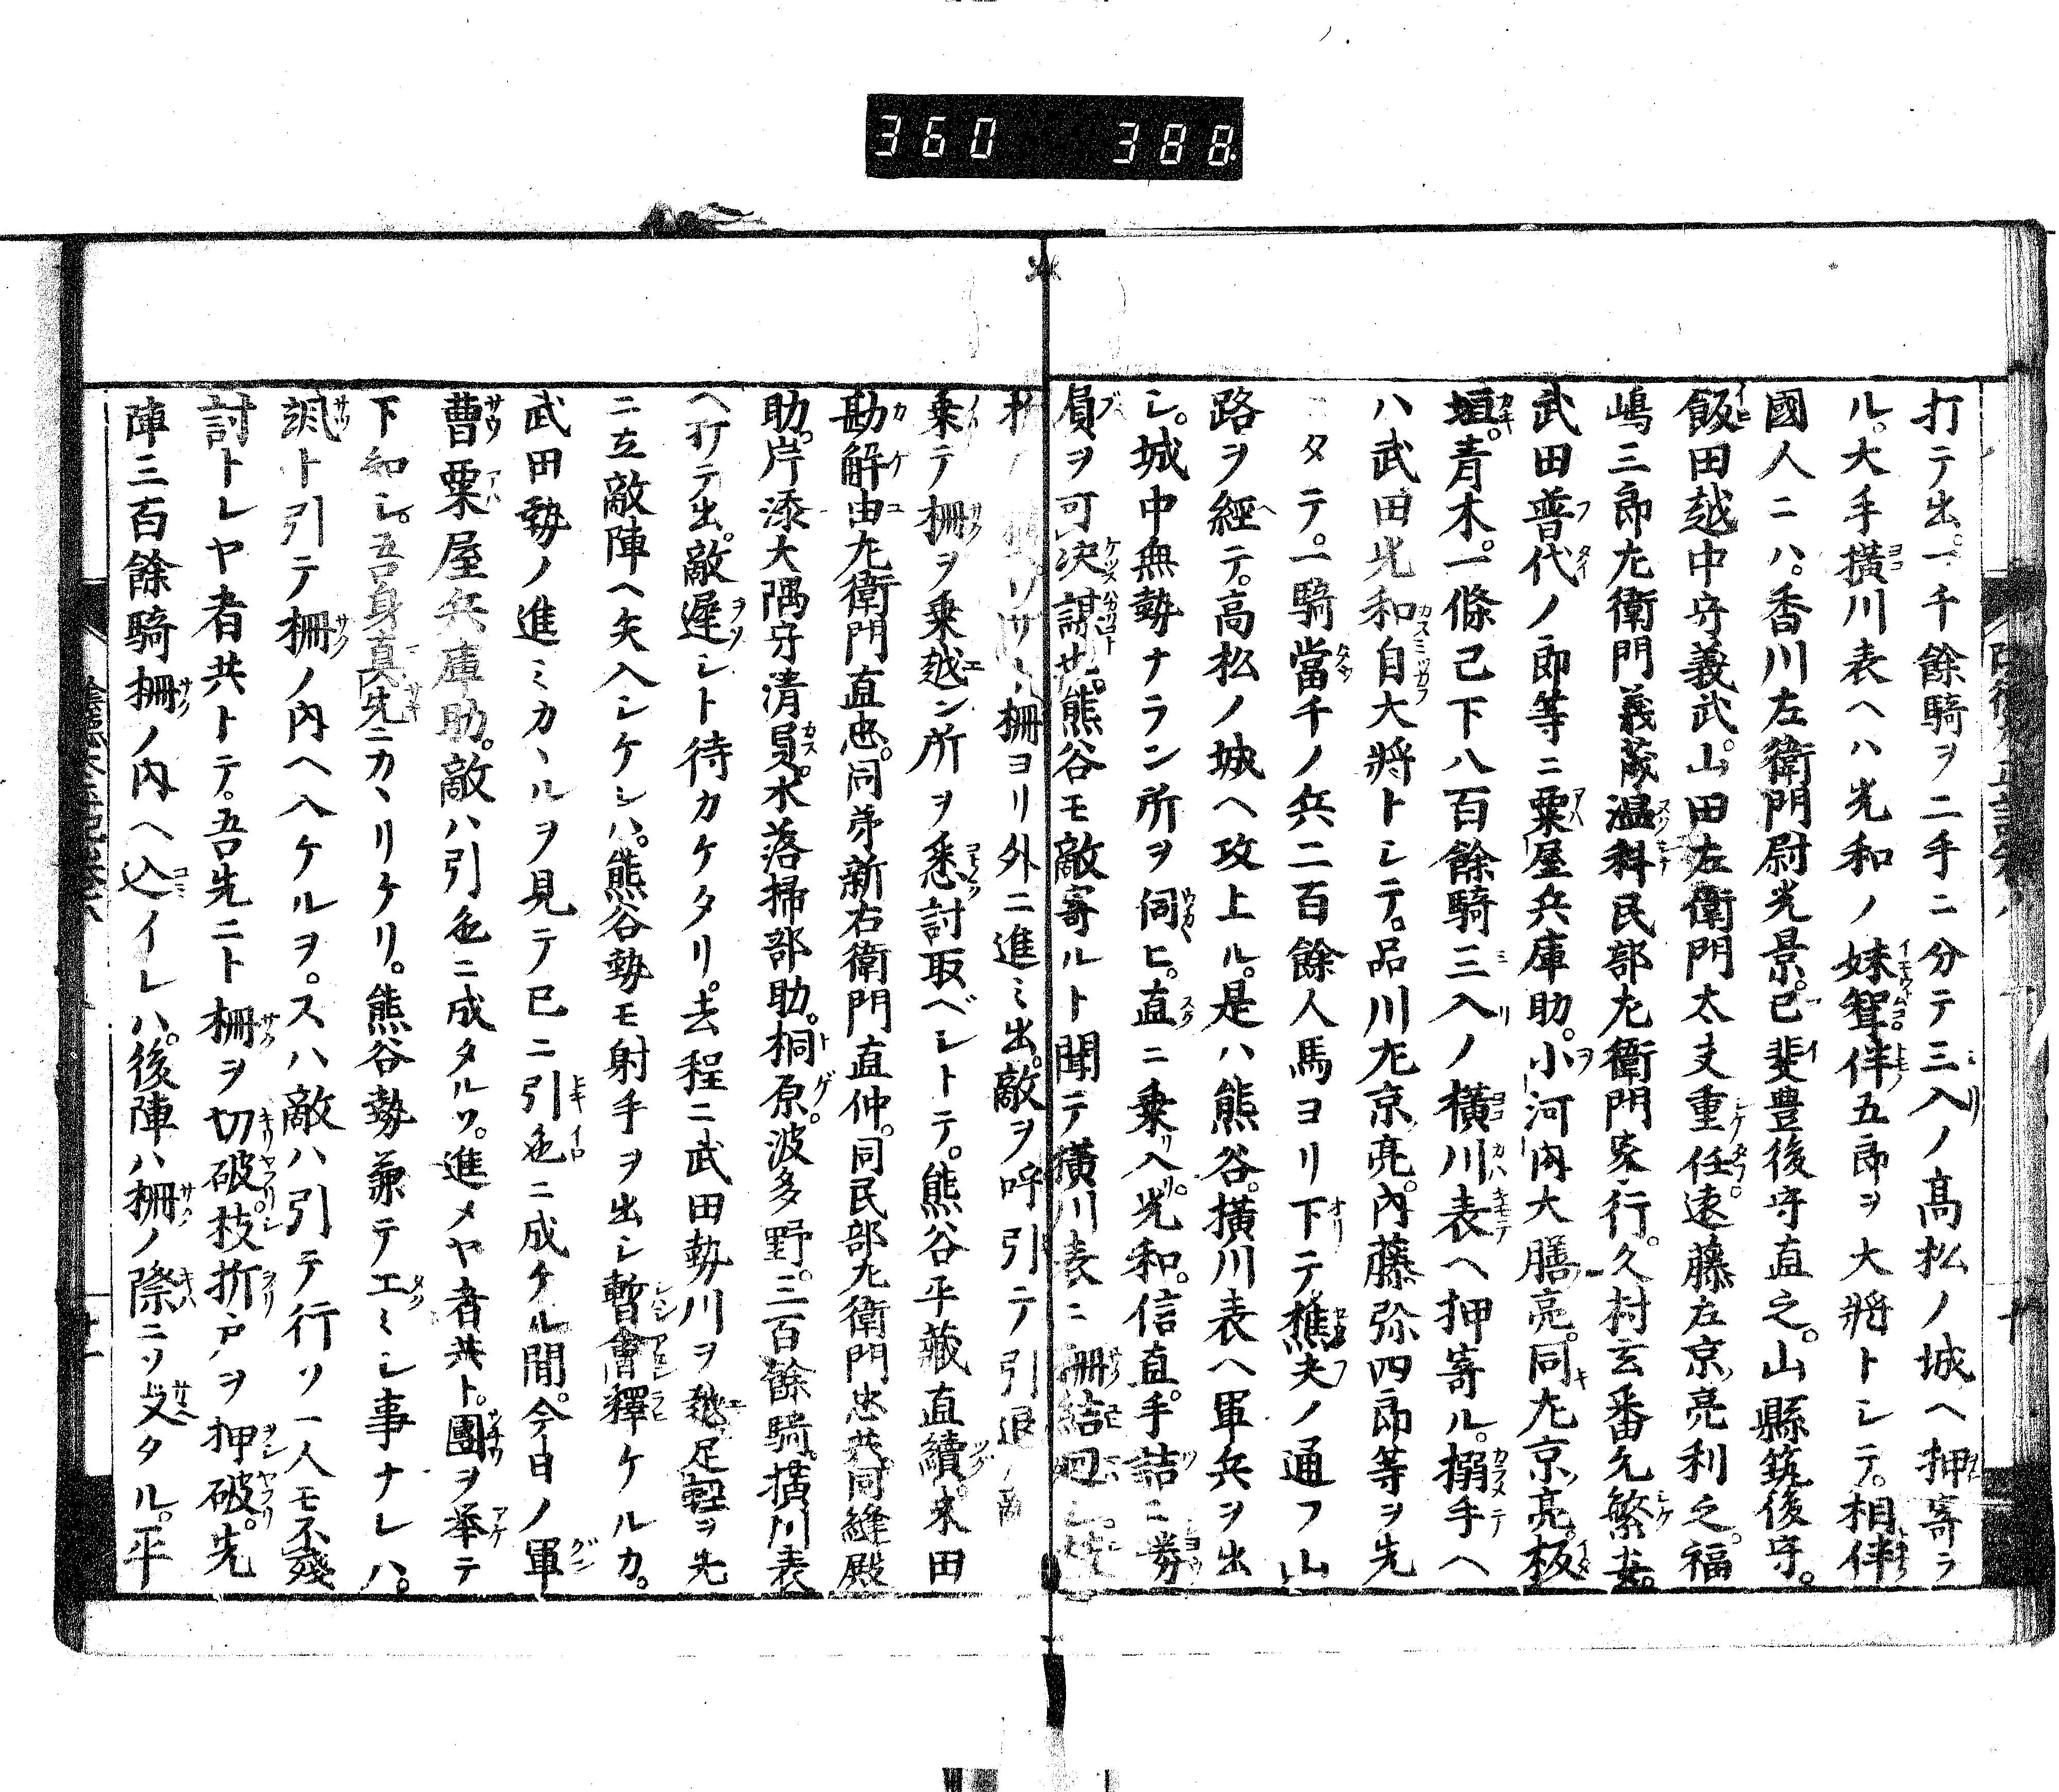 360 388
打テ出。一千餘騎ヲ二手ニ分テ三入ノ髙松ノ城ヘ押寄ラ
ル。大手横川表ヘハ光和ノ妹聟伴五郎ヲ大將トシテ。相伴
國人ニハ。香川左衛門尉光景。己斐豊後守直之。山縣筑後守。
飯田越中守義武。山田左衛門太夫重任。遠藤左京亮利之。福
嶋三郎左衛門義茂。温科民部左衛門家行。久村玄番允繁安。
武田普代ノ郎等ニ粟屋兵庫助。小河内大膳亮。同左京亮。板
垣。青木。一條己下八百餘騎三入ノ横川表ヘ押寄ル。搦手ヘ
ハ武田光和自大將トシテ。品川左京亮。内藤弥四郎等ヲ先
タテ。一騎當千ノ兵二百餘人馬ヨリ下テ樵夫ノ通フ山
路ヲ經テ。高松ノ城ヘ攻上ル。是ハ熊谷。横川表ヘ軍兵ヲ出
シ。城中無勢ナラン所ヲ伺ヒ。直ニ乗入。光和。信直。手詰ニ勝
負ヲ可決謀也。熊谷モ敵寄ルト聞テ横川表ニ柵結回シ
柵ヨリ外ニ進ミ出。敵ヲ呼引テ引退
乗テ柵ヲ乗越ン所ヲ悉討取ベシトテ。熊谷平藏直續。末田
勘解由左衛門直忠。同弟新右衛門直仲。同民部左衛門忠共。同縫殿
助。岸添大隅守清員。水落掃部助。桐原。波多野。三百餘騎。横川表
ヘ打テ出。敵遅シト待カケタリ。去程ニ武田勢川ヲ越足軽ヲ先
ニ立敵陣ヘ矢入シケレハ。熊谷勢モ射手ヲ出シ暫會釋ケルカ。
武田勢ノ進ミカヽルヲ見テ已ニ引色ニ成ケル間。今日ノ軍
曹粟屋兵庫助。敵ハ引色ニ成タルソ。進メヤ者共ト。團ヲ举テ
下知シ。吾身真先ニカヽリケリ。熊谷勢兼テエミシ事ナレハ。
颯ト引テ柵ノ内ヘ入ケルヲ。スハ敵ハ引テ行ソ一人モ不殘
討トレヤ者共トテ。吾先ニト柵ヲ切破枝折戸ヲ押破。先
陣三百餘騎柵ノ内ヘ込イレハ。後陣ハ柵ノ際ニソ支タル。平